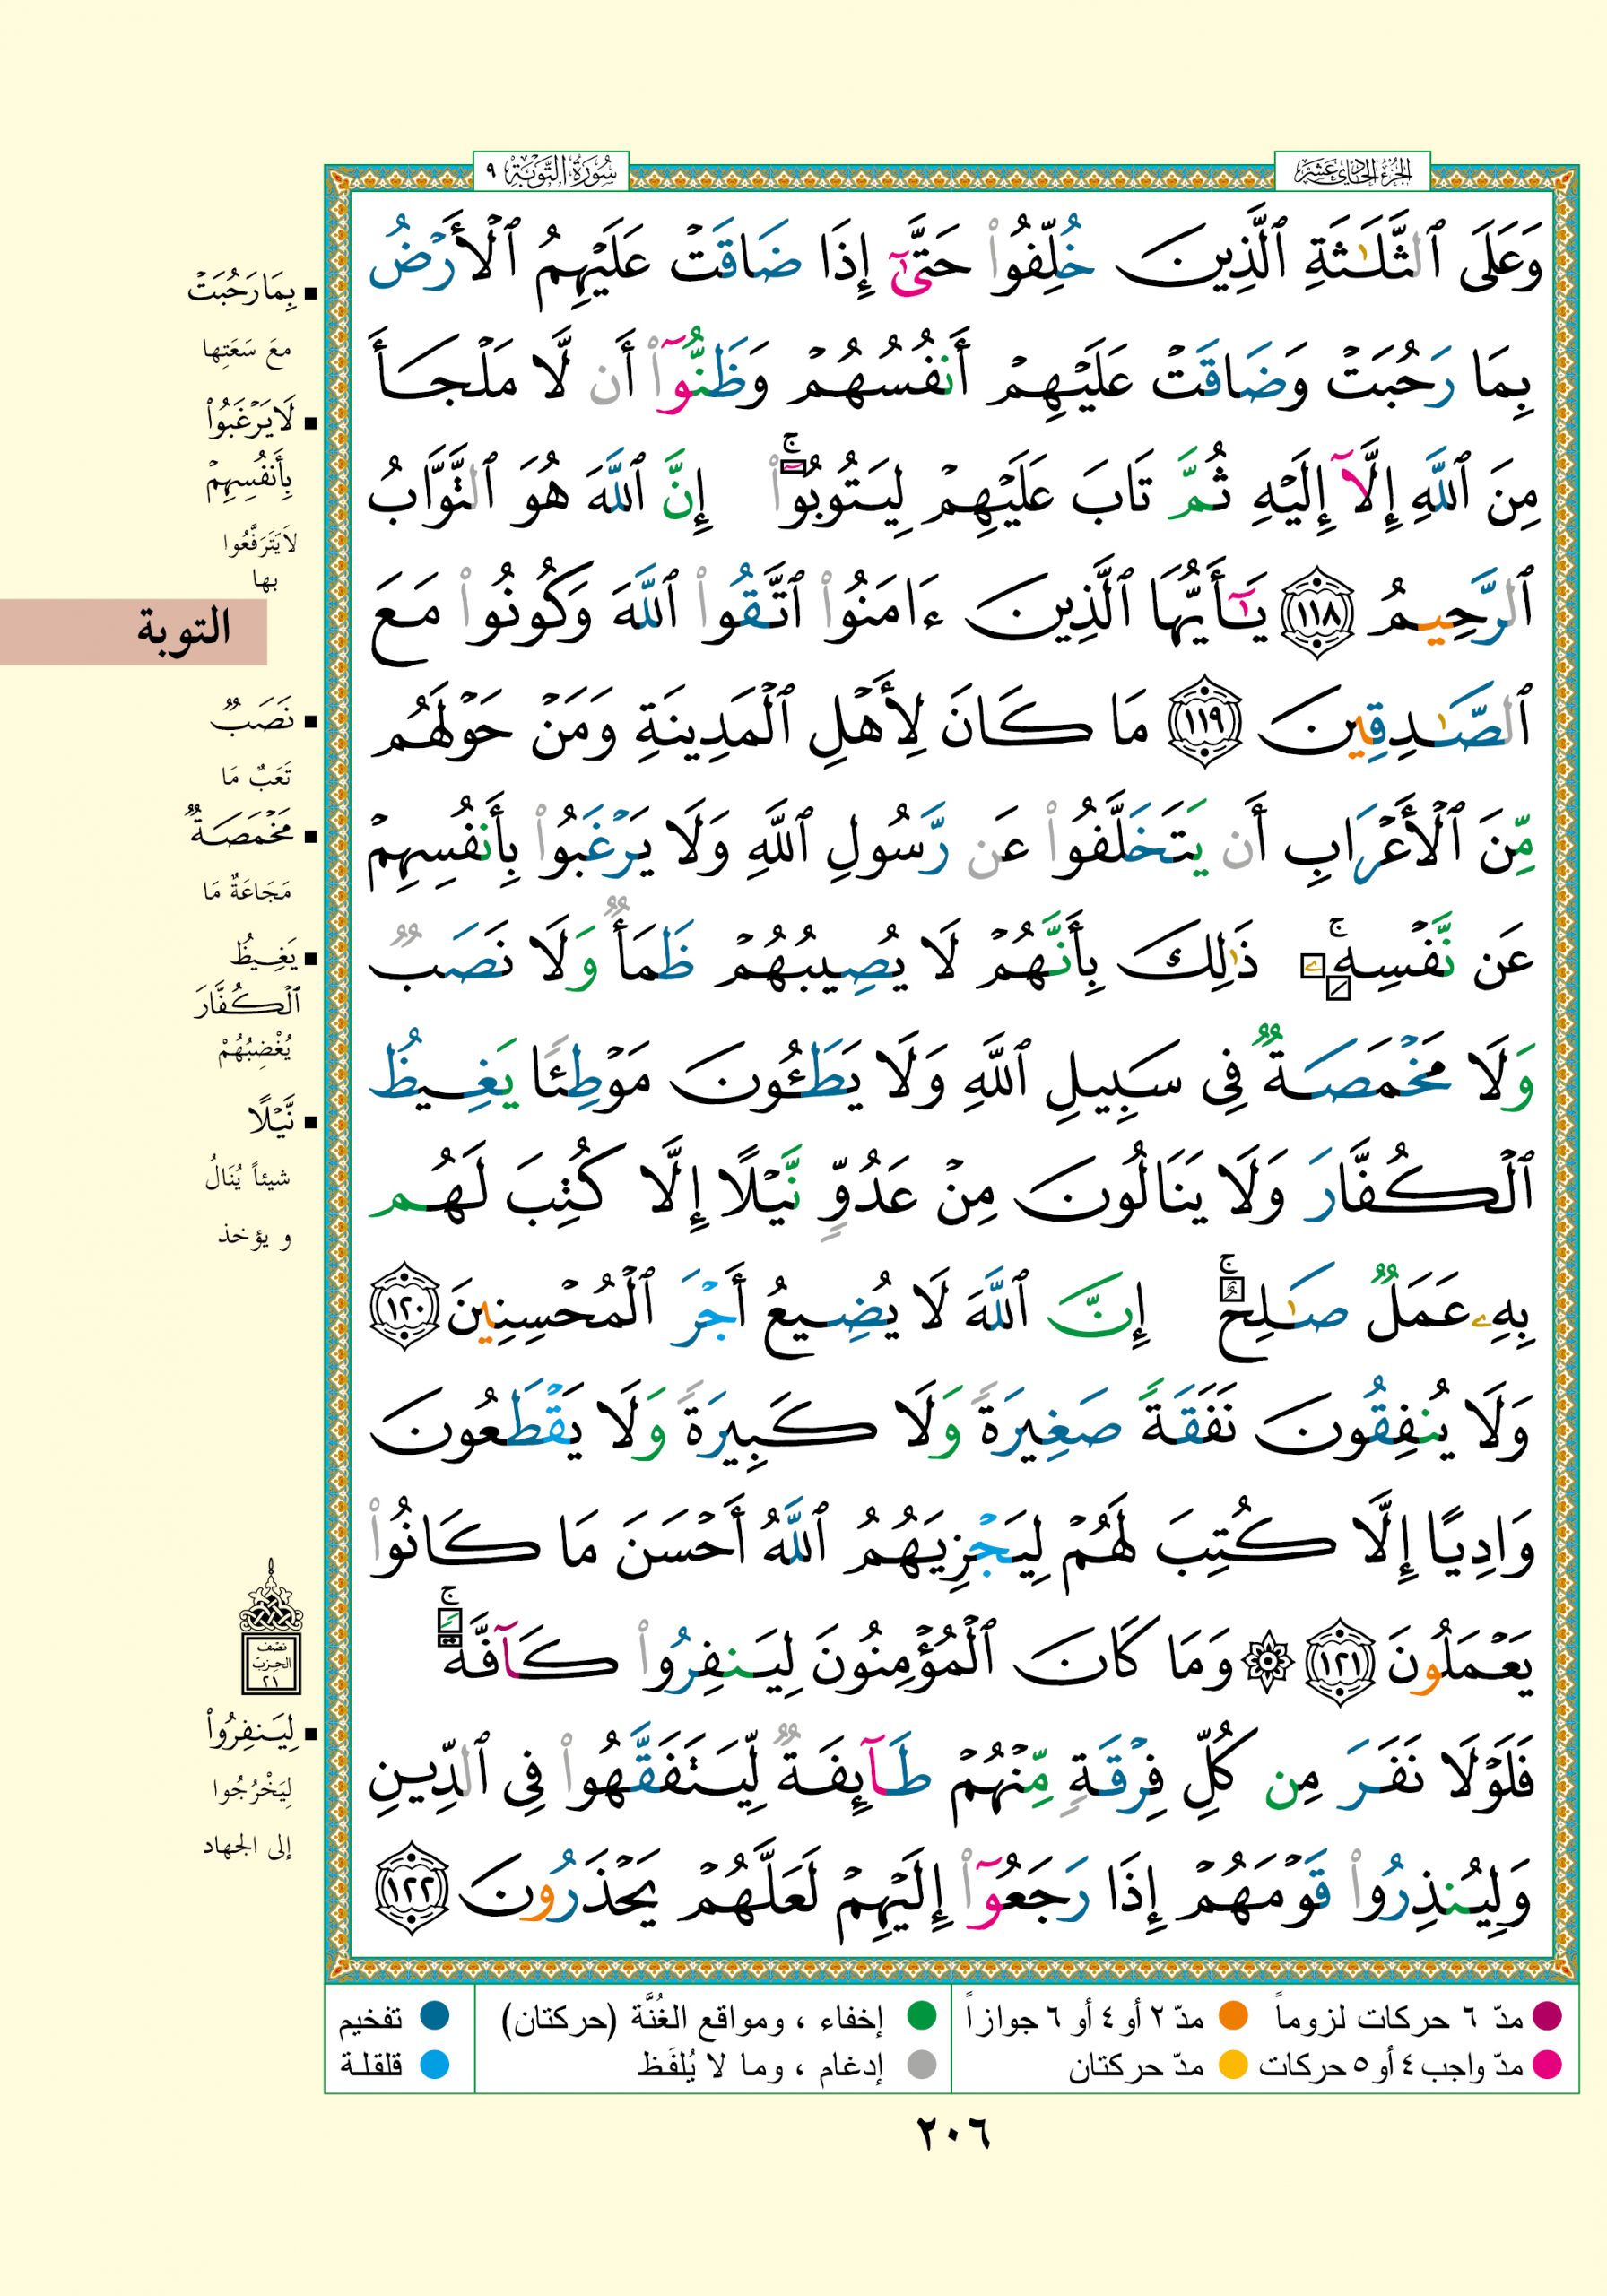 الجزء الحادي عشر
سورة التوبة ٩
وَعَلَى ٱلثَّلَٰثَةِ ٱلَّذِينَ خُلِّفُوا۟ حَتَّىٰٓ إِذَا ضَاقَتْ عَلَيْهِمُ ٱلْأَرْضُ
بِمَا رَحُبَتْ وَضَاقَتْ عَلَيْهِمْ أَنفُسُهُمْ وَظَنُّوٓا۟ أَن لَّا مَلْجَأَ
مِنَ ٱللَّهِ إِلَّآ إِلَيْهِ ثُمَّ تَابَ عَلَيْهِمْ لِيَتُوبُوٓا۟ ۚ إِنَّ ٱللَّهَ هُوَ ٱلتَّوَّابُ
ٱلرَّحِيمُ ١١٨ يَٰٓأَيُّهَا ٱلَّذِينَ ءَامَنُوا۟ ٱتَّقُوا۟ ٱللَّهَ وَكُونُوا۟ مَعَ
ٱلصَّٰدِقِينَ ١١٩ مَا كَانَ لِأَهْلِ ٱلْمَدِينَةِ وَمَنْ حَوْلَهُم
مِّنَ ٱلْأَعْرَابِ أَن يَتَخَلَّفُوا۟ عَن رَّسُولِ ٱللَّهِ وَلَا يَرْغَبُوا۟ بِأَنفُسِهِمْ
عَن نَّفْسِهِۦ ۚ ذَٰلِكَ بِأَنَّهُمْ لَا يُصِيبُهُمْ ظَمَأٌ وَلَا نَصَبٌ
وَلَا مَخْمَصَةٌ فِى سَبِيلِ ٱللَّهِ وَلَا يَطَـُٔونَ مَوْطِئًا يَغِيظُ
ٱلْكُفَّارَ وَلَا يَنَالُونَ مِنْ عَدُوٍّ نَّيْلًا إِلَّا كُتِبَ لَهُم
بِهِۦ عَمَلٌ صَٰلِحٌ ۚ إِنَّ ٱللَّهَ لَا يُضِيعُ أَجْرَ ٱلْمُحْسِنِينَ ١٢٠
وَلَا يُنفِقُونَ نَفَقَةً صَغِيرَةً وَلَا كَبِيرَةً وَلَا يَقْطَعُونَ
وَادِيًا إِلَّا كُتِبَ لَهُمْ لِيَجْزِيَهُمُ ٱللَّهُ أَحْسَنَ مَا كَانُوا۟
يَعْمَلُونَ ١٢١ ۞ وَمَا كَانَ ٱلْمُؤْمِنُونَ لِيَنفِرُوا۟ كَآفَّةً ۚ
فَلَوْلَا نَفَرَ مِن كُلِّ فِرْقَةٍ مِّنْهُمْ طَآئِفَةٌ لِّيَتَفَقَّهُوا۟ فِى ٱلدِّينِ
وَلِيُنذِرُوا۟ قَوْمَهُمْ إِذَا رَجَعُوٓا۟ إِلَيْهِمْ لَعَلَّهُمْ يَحْذَرُونَ ١٢٢
بِمَا رَحُبَتْ
مَعَ سَعَتِها
لَا يَرْغَبُوا۟
بِأَنفُسِهِمْ
لاَ يَتَرَفَّعُوا
بها
التوبة
نَصَبٌ
تَعَبٌ مَا
مَخْمَصَةٌ
مَجَاعَةٌ مَا
يَغِيظُ
ٱلْكُفَّارَ
يُغْضِبُهُمْ
نَّيْلًا
شيئاً يُنَالُ
و يؤخذ
نصف
الحزب
٢١
لِيَنفِرُوا۟
لِيَخْرُجُوا
إلى الجهاد
مدّ ٦ حركات لزوماً
مدّ ٢ أو ٤ أو ٦ جوازاً
إخفاء ، ومواقع الغُنَّة (حركتان)
تفخيم
مدّ واجب ٤ أو ٥ حركات
مدّ حركتان
إدغام ، وما لا يُلفَظ
قلقلة
٢٠٦